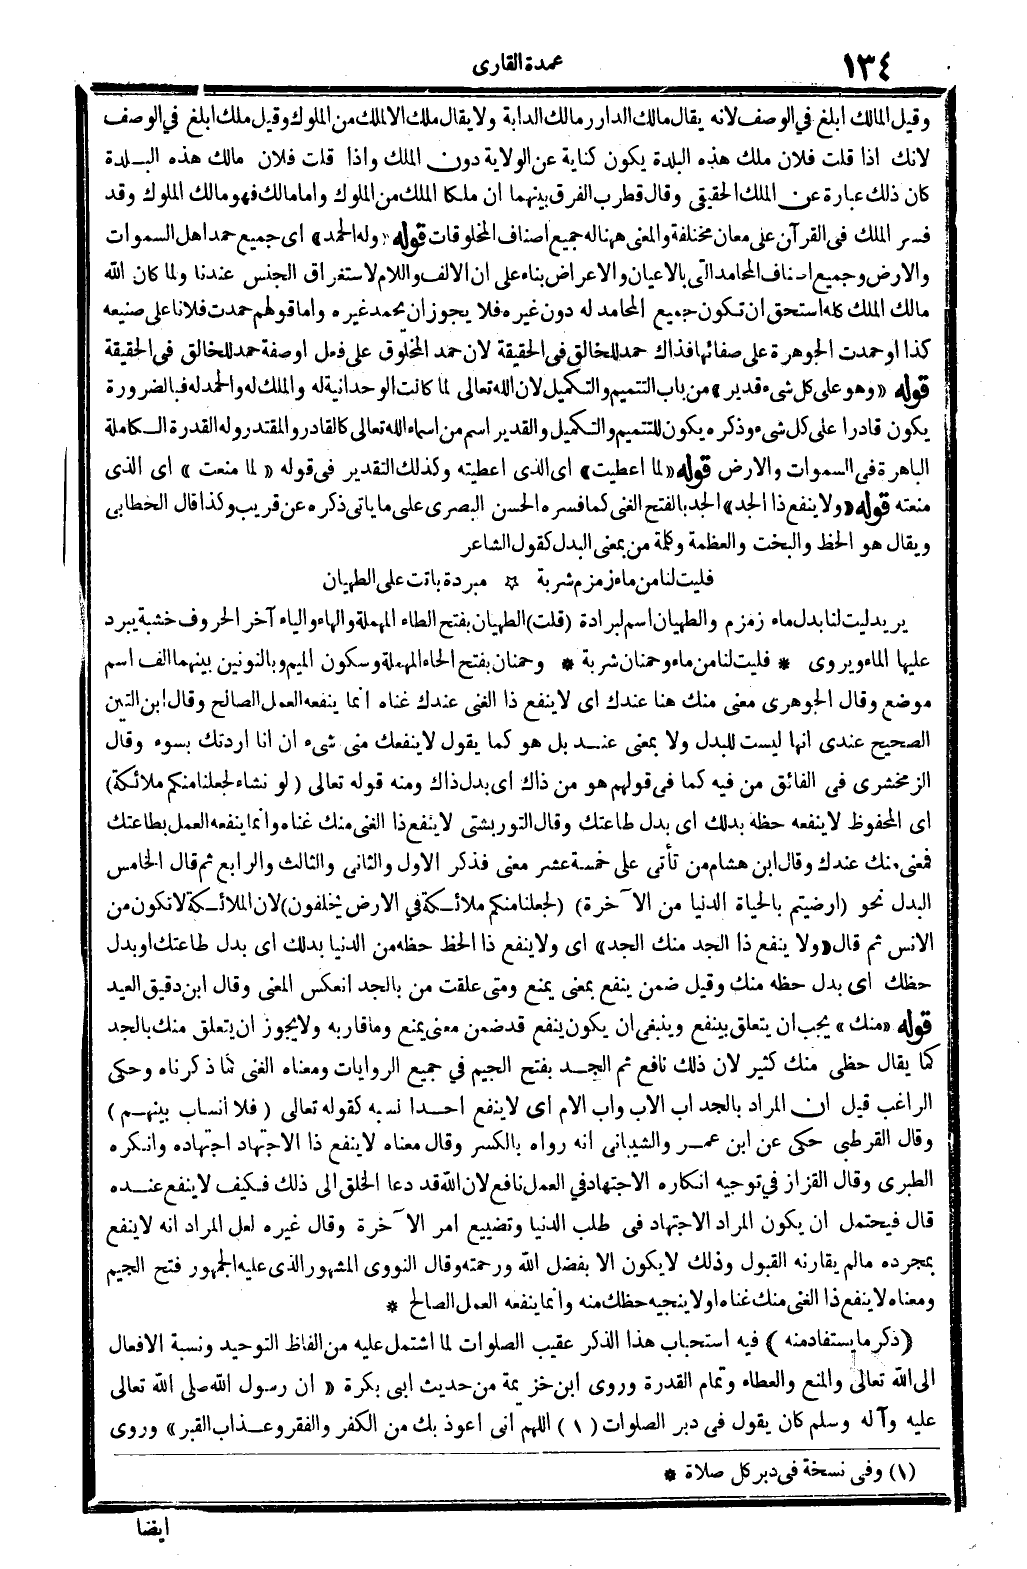 ١٣٤
عمدة القارى
وقيل المالك ابلغ في الوصف لانه يقال مالك الدار ومالك الدابة ولا يقال ملك الا لملك من الملوك وقيل ملك ابلغ في الوصف
لانك اذا قلت فلان ملك هذه البلدة يكون كناية عن الولاية دون الملك واذا قلت فلان مالك هذه البلدة
كان ذلك عبارة عن الملك الحقيقي وقال قطرب الفرق بينهما ان ملكا الملك من الملوك واما مالك فهو مالك الملوك وقد
فسر الملك فى القرآن على معان مختلفة والمعنى ههنا له جميع اصناف المخلوقات قوله «وله الحمد» اى جميع حمد اهل السموات
والارض وجميع اصناف المحامد التى بالاعيان والاعراض بناء على ان الالف واللام لاستغراق الجنس عندنا ولما كان الله
مالك الملك كله استحق ان تكون جميع المحامد له دون غيره فلا يجوز ان يحمد غيره واما قولهم حمدت فلانا على صنيعه
كذا او حمدت الجوهرة على صفائها فذاك حمد للخالق فى الحقيقة لان حمد المخلوق على فعل او صفة حمد للخالق فى الحقيقة
قوله «وهو على كل شىء قدير» من باب التتميم والتكميل لان الله تعالى لما كانت الوحدانية له والملك له والحمد له فبالضرورة
يكون قادرا على كل شىء وذكره يكون للتتميم والتكميل والقدير اسم من اسماء الله تعالى كالقادر والمقتدر وله القدرة الكاملة
الباهرة فى السموات والارض قوله «لما اعطيت» اى الذى اعطيته وكذلك التقدير فى قوله «لما منعت» اى الذى
منعته قوله «ولا ينفع ذا الجد» الجد بالفتح الغنى كما فسره الحسن البصرى على ما ياتى ذكره عن قريب وكذا قال الخطابى
ويقال هو الحظ والبخت والعظمة وكلمة من بمعنى البدل كقول الشاعر
فليت لنا من ماء زمزم شربة ☆ مبردة باتت على الطهيان
يريد ليت لنا بدل ماء زمزم والطهيان اسم لبرادة (قلت) الطهيان بفتح الطاء المهملة والهاء والياء آخر الحروف خشبة يبرد
عليها الماء ويروى * فليت لنا من ماء وحمنان شربة * وحمنان بفتح الحاء المهملة وسكون الميم وبالنونين بينهما الف اسم
موضع وقال الجوهرى معنى منك هنا عندك اى لا ينفع ذا الغنى عندك غناه انما ينفعه العمل الصالح وقال ابن التين
الصحيح عندى انها ليست للبدل ولا بمعنى عند بل هو كما يقول لا ينفعك منى شىء ان انا اردتك بسوء وقال
الزمخشرى فى الفائق من فيه كما فى قولهم هو من ذاك اى بدل ذاك ومنه قوله تعالى (لو نشاء لجعلنا منكم ملائكة)
اى المحفوظ لا ينفعه حظه بدلك اى بدل طاعتك وقال التوربشتى لا ينفع ذا الغنى منك غناه وانما ينفعه العمل بطاعتك
فمعنى منك عندك وقال ابن هشام من تأتى على خمسة عشر معنى فذكر الاول والثانى والثالث والرابع ثم قال الخامس
البدل نحو (ارضيتم بالحياة الدنيا من الآخرة) (لجعلنا منكم ملائكة في الارض يخلفون) لان الملائكة لا تكون من
الانس ثم قال «ولا ينفع ذا الجد منك الجد» اى ولا ينفع ذا الحظ حظه من الدنيا بدلك اى بدل طاعتك او بدل
حظك اى بدل حظه منك وقيل ضمن ينفع بمعنى يمنع ومتى علقت من بالجد انعكس المعنى وقال ابن دقيق العيد
قوله «منك» يجب ان يتعلق بينفع وينبغى ان يكون ينفع قد ضمن معنى يمنع وما قاربه ولا يجوز ان يتعلق منك بالجد
كما يقال حظى منك كثير لان ذلك نافع ثم الجد بفتح الجيم في جميع الروايات ومعناه الغنى كما ذكرناه وحكى
الراغب قيل ان المراد بالجد اب الاب واب الام اى لا ينفع احدا نسبه كقوله تعالى (فلا أنساب بينهم)
وقال القرطبى حكى عن ابن عمر والشيبانى انه رواه بالكسر وقال معناه لا ينفع ذا الاجتهاد اجتهاده وانكره
الطبرى وقال القزاز في توجيه انكاره الاجتهاد في العمل نافع لان الله قد دعا الخلق الى ذلك فكيف لا ينفع عنده
قال فيحتمل ان يكون المراد الاجتهاد فى طلب الدنيا وتضييع امر الآخرة وقال غيره لعل المراد انه لا ينفع
بمجرده ما لم يقارنه القبول وذلك لا يكون الا بفضل الله ورحمته وقال النووى المشهور الذى عليه الجمهور فتح الجيم
ومعناه لا ينفع ذا الغنى منك غناه او لا ينجيه حظك منه وانما ينفعه العمل الصالح *
(ذكر ما يستفاد منه) فيه استحباب هذا الذكر عقيب الصلوات لما اشتمل عليه من الفاظ التوحيد ونسبة الافعال
الى الله تعالى والمنع والعطاء وتمام القدرة وروى ابن خزيمة من حديث ابى بكرة «ان رسول الله صلى الله تعالى
عليه وآله وسلم كان يقول فى دبر الصلوات (١) اللهم انى اعوذ بك من الكفر والفقر وعذاب القبر» وروى
(١) وفى نسخة فى دبر كل صلاة *
ايضا